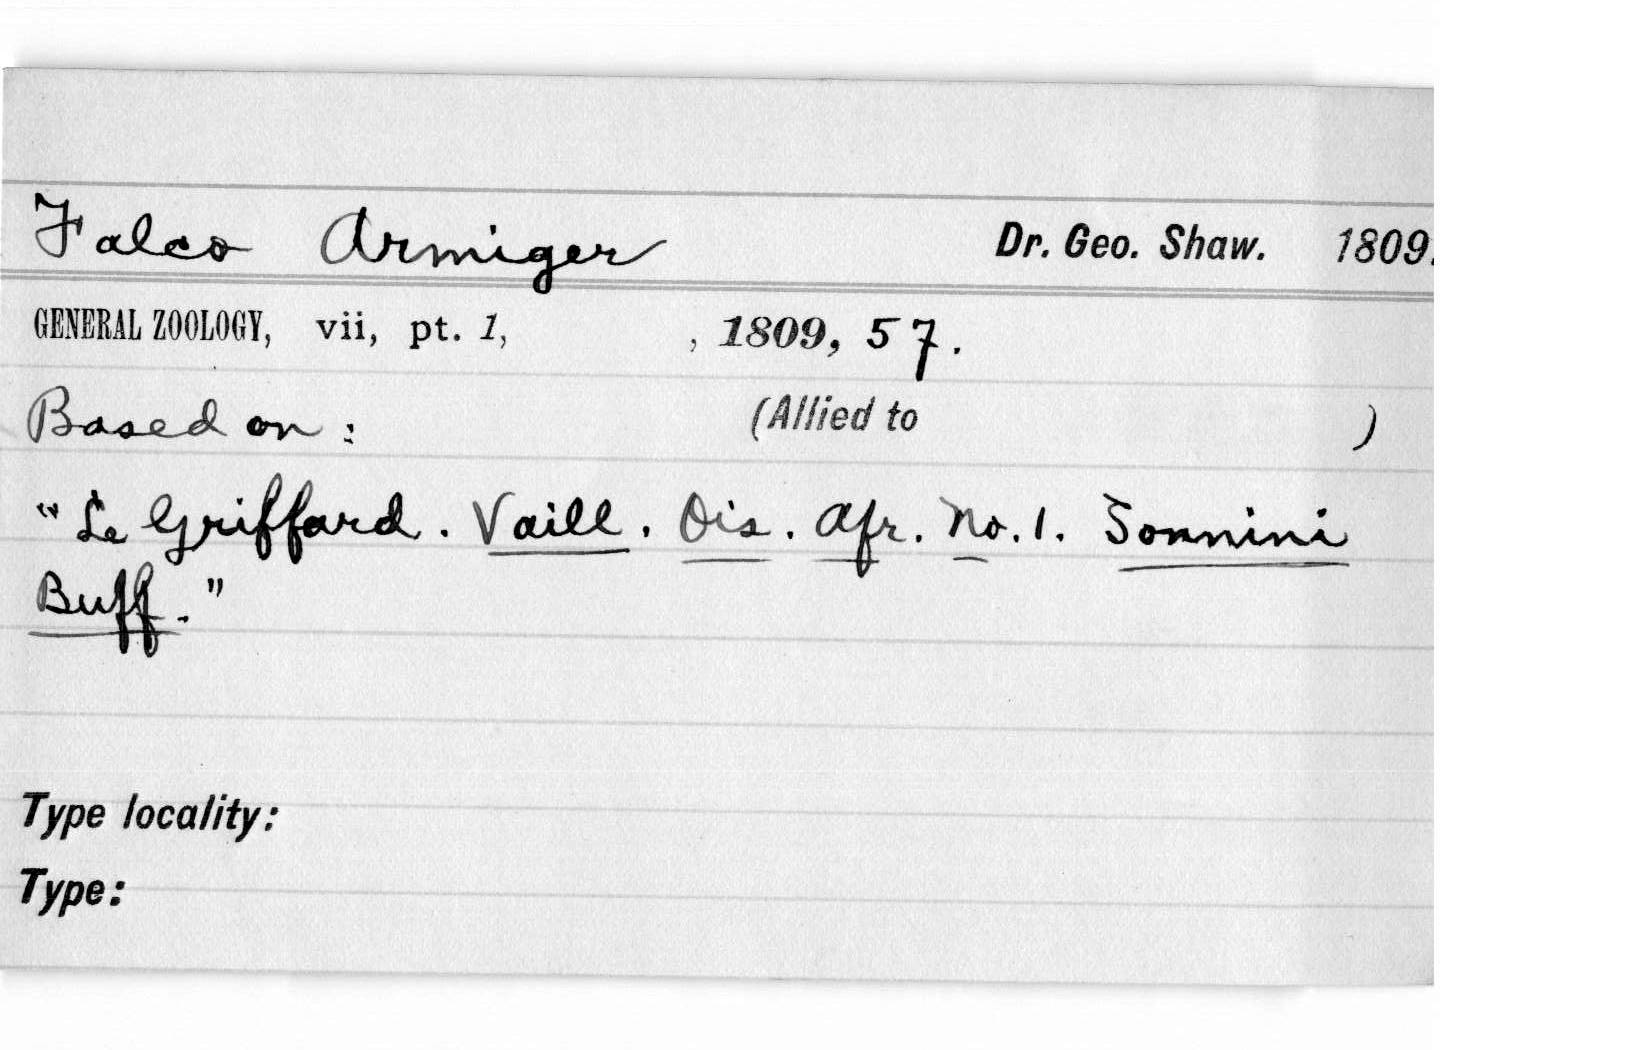 Falco Armiger Dr. Geo. Shaw. 1809.
GENERAL ZOOLOGY, vii, pt. 1, , 1809, 57.
Based on : (Allied to )
"Le Griffard. Vaill. Ois. Afr. No. 1. Sonnini
Buff."
Type locality:
Type: